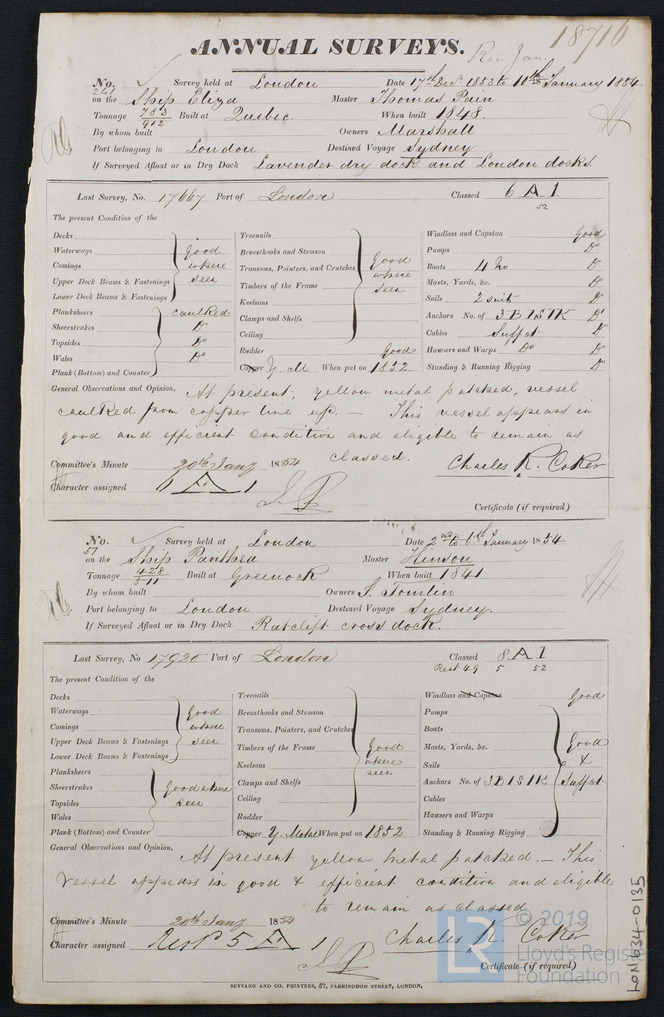 18716
ANNUAL SURVEYS.
Rec Jan
No. 241 Survey held at London Date 17th Dec 1853 to 10th January 1854
on the Ship Eliza Master Thomas Pain
Tonnage 783 912 Built at Quebec When built 1848.
By whom built Owners Marshall
Port belonging to London Destined Voyage Sydney
If Surveyed Afloat or in Dry Dock Lavender dry dock and London docks.
Last Survey, No. 17667 Port of London Classed 6 A 1
52
The present Condition of the
Decks
Waterways
Comings
Upper Deck Beams & Fastenings
Lower Deck Beams & Fastenings
Good where seen
Planksheers caulked
Sheerstrakes Do
Topsides Do
Wales Do
Plank (Bottom) and Counter
Treenails
Breasthooks and Stemson
Transoms, Pointers, and Crutches
Timbers of the Frame
Keelsons
Clamps and Shelfs
Ceiling
Good where seen
Rudder Good
Copper Y. M When put on 1852.
Windlass and Capstan Good
Pumps Do
Boats 4 No Do
Masts, Yards, &c. Do
Sails 2 suit Do
Anchors No. of 3 B 1 S 1 K Do
Cables Suffct Do
Hawsers and Warps Do Do
Standing & Running Rigging Do
General Observations and Opinion, At present, yellow metal patched, vessel
caulked from copper line up. — This vessel appears in
good and efficient condition and eligible to remain as
classed.
Committee's Minute 20th Jany 1854
Charles R. Coker
Character assigned 6 A 1
Certificate (if required)
No. 57 Survey held at London Date 2nd to 6th January 1854
on the Ship Panthea Master Hinson
Tonnage 428 511 Built at Greenock When built 1841
By whom built Owners J. Tomlin
Port belonging to London Destined Voyage Sydney.
If Surveyed Afloat or in Dry Dock Ratcliff cross dock.
Last Survey, No 17920 Port of London Classed 8 A 1
Rest 49 5 52
The present Condition of the
Decks
Waterways
Comings
Upper Deck Beams & Fastenings
Lower Deck Beams & Fastenings
Good where seen
Planksheers
Sheerstrakes
Topsides
Wales
Plank (Bottom) and Counter
Good where seen
Treenails
Breasthooks and Stemson
Transoms, Pointers, and Crutches
Timbers of the Frame
Keelsons
Clamps and Shelfs
Ceiling
Rudder
Good where seen
Copper Y. Metal When put on 1852
Windlass and Capstan Good
Pumps
Boats
Masts, Yards, &c.
Sails
Anchors No. of 3 B 1 S 1 K
Cables
Hawsers and Warps
Standing & Running Rigging
Good & Suffct
General Observations and Opinion, At present yellow metal patched. — This
vessel appears in good & efficient condition and eligible
to remain as classed
Committee's Minute 20th Jany 1854
Character assigned Rest 5 A 1
Charles R. Coker
Certificate (if required)
SEYFANG AND CO. PRINTERS, 57, FARRINGDON STREET, LONDON.
LR © 2019
Lloyd's Register
Foundation
LON634-0135